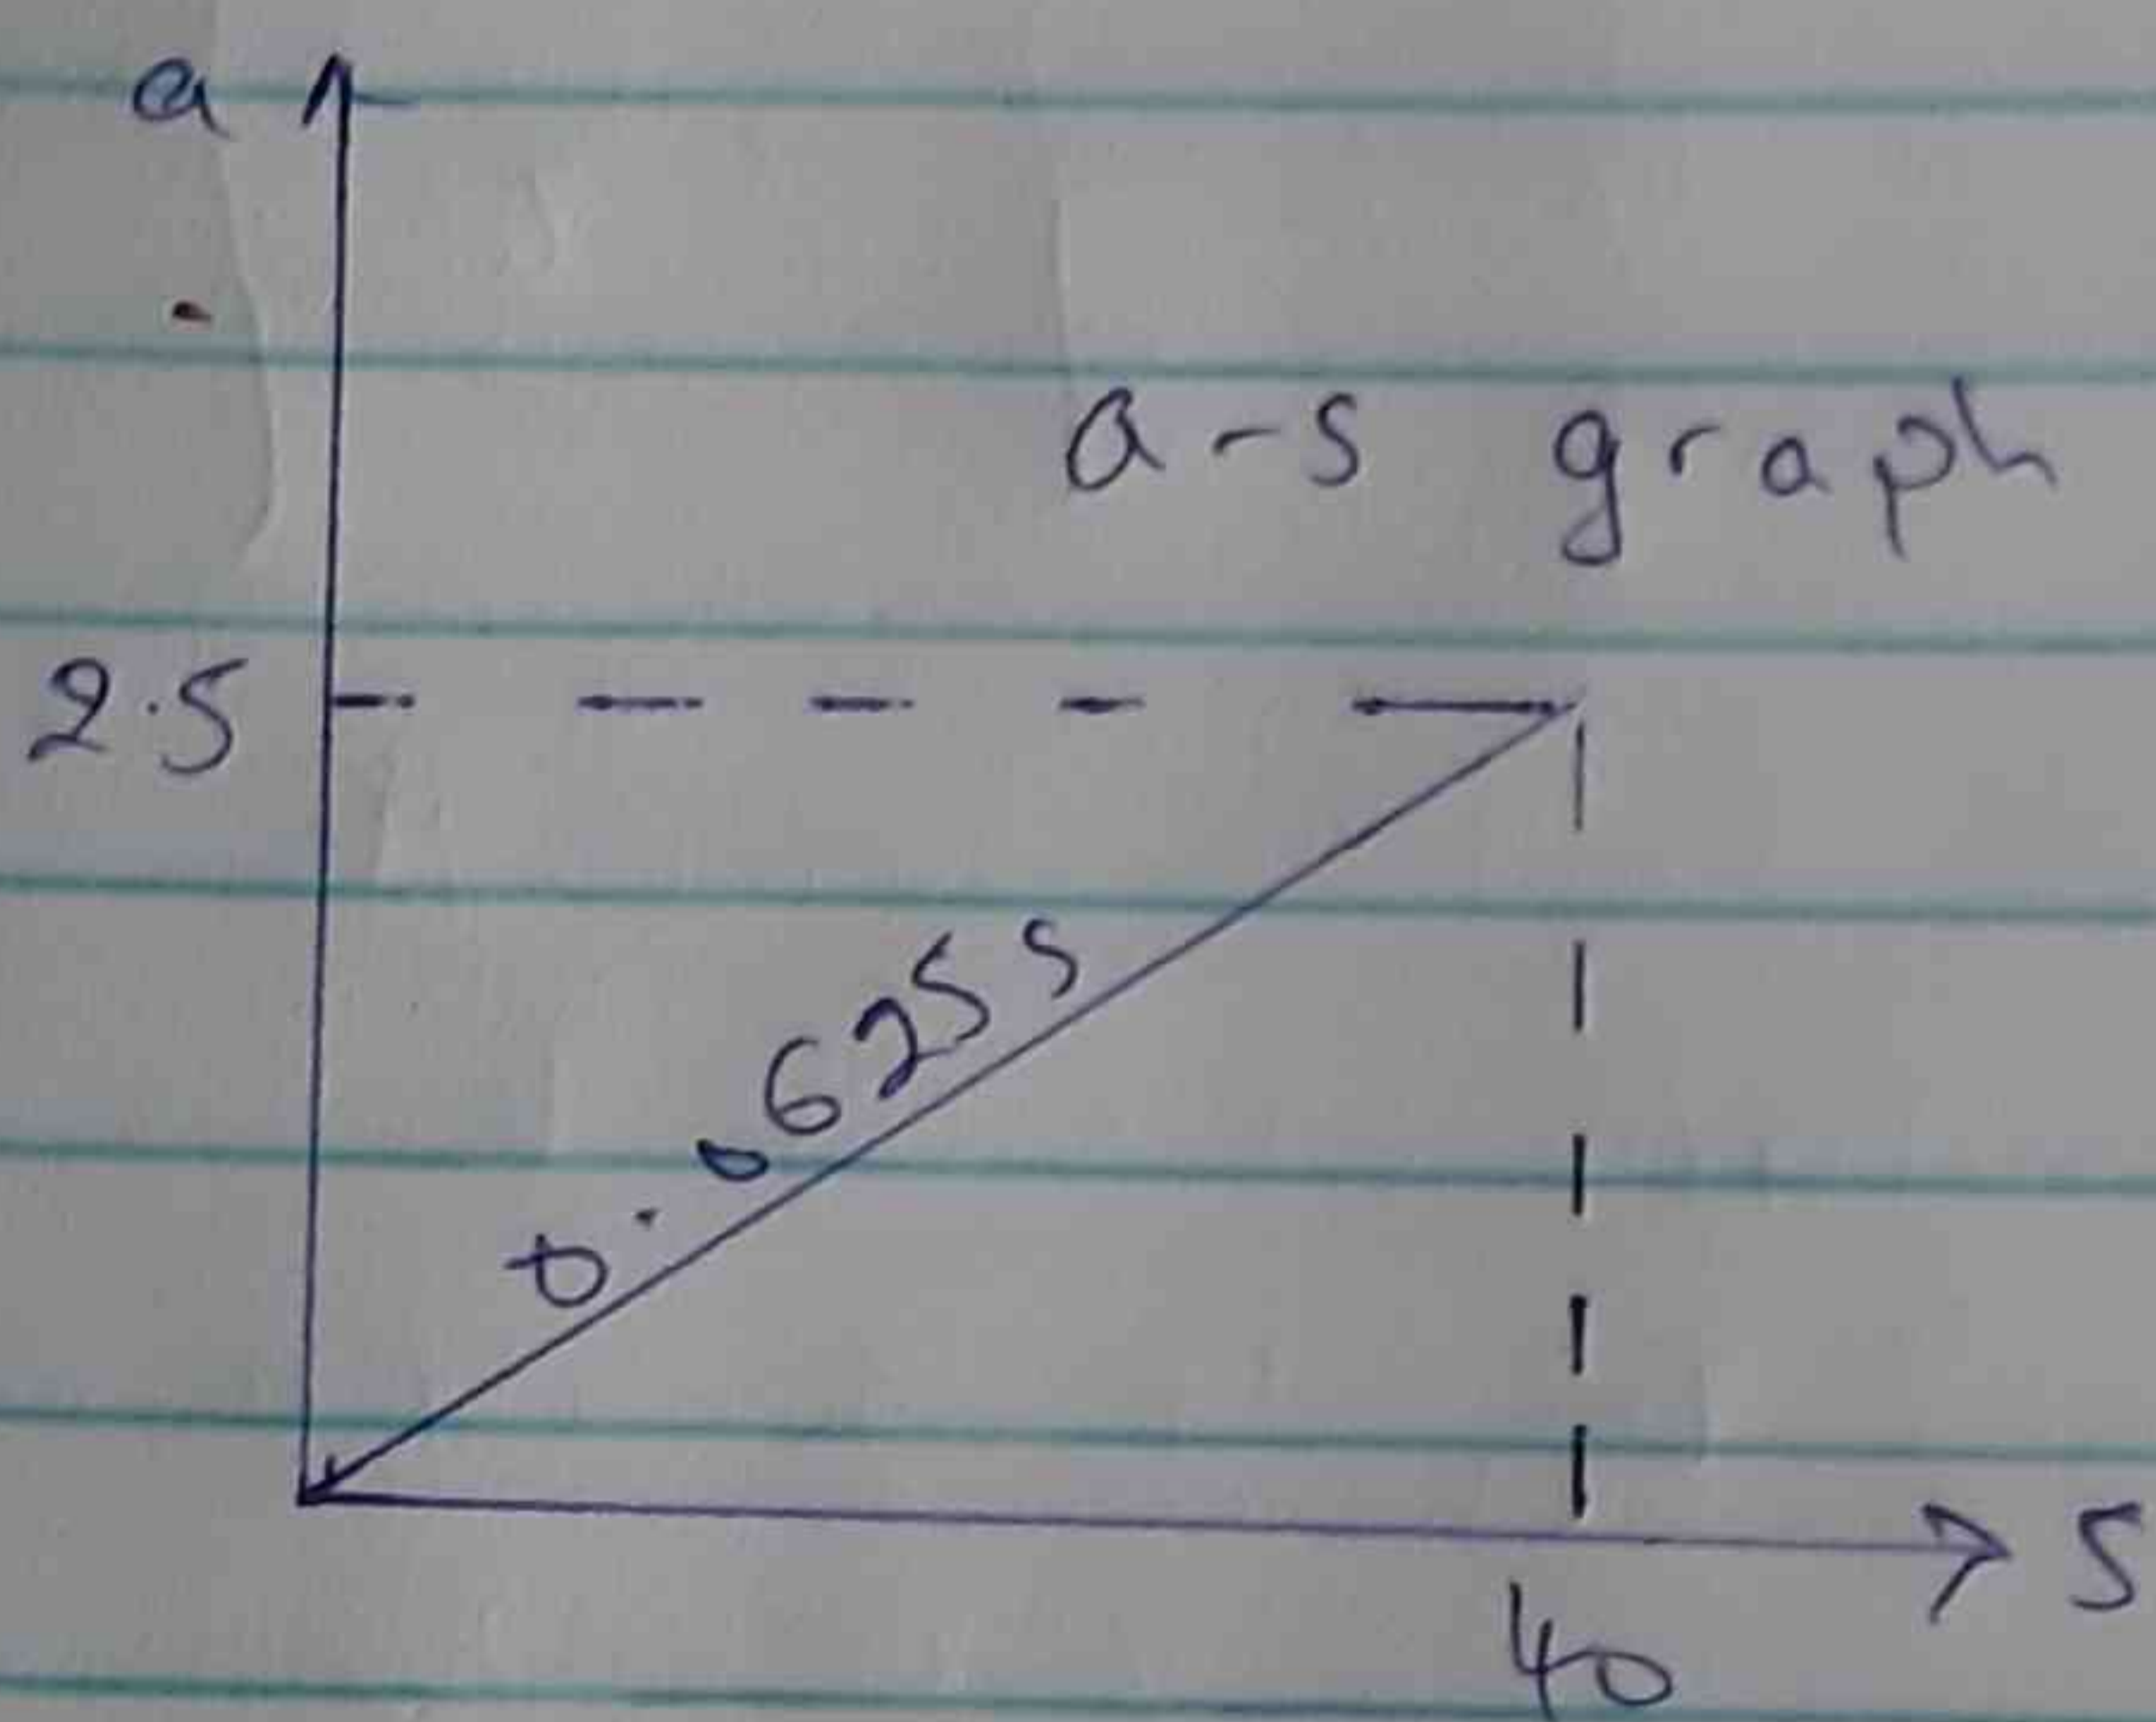 a
a-s graph
2.5
0.0625s
s
40